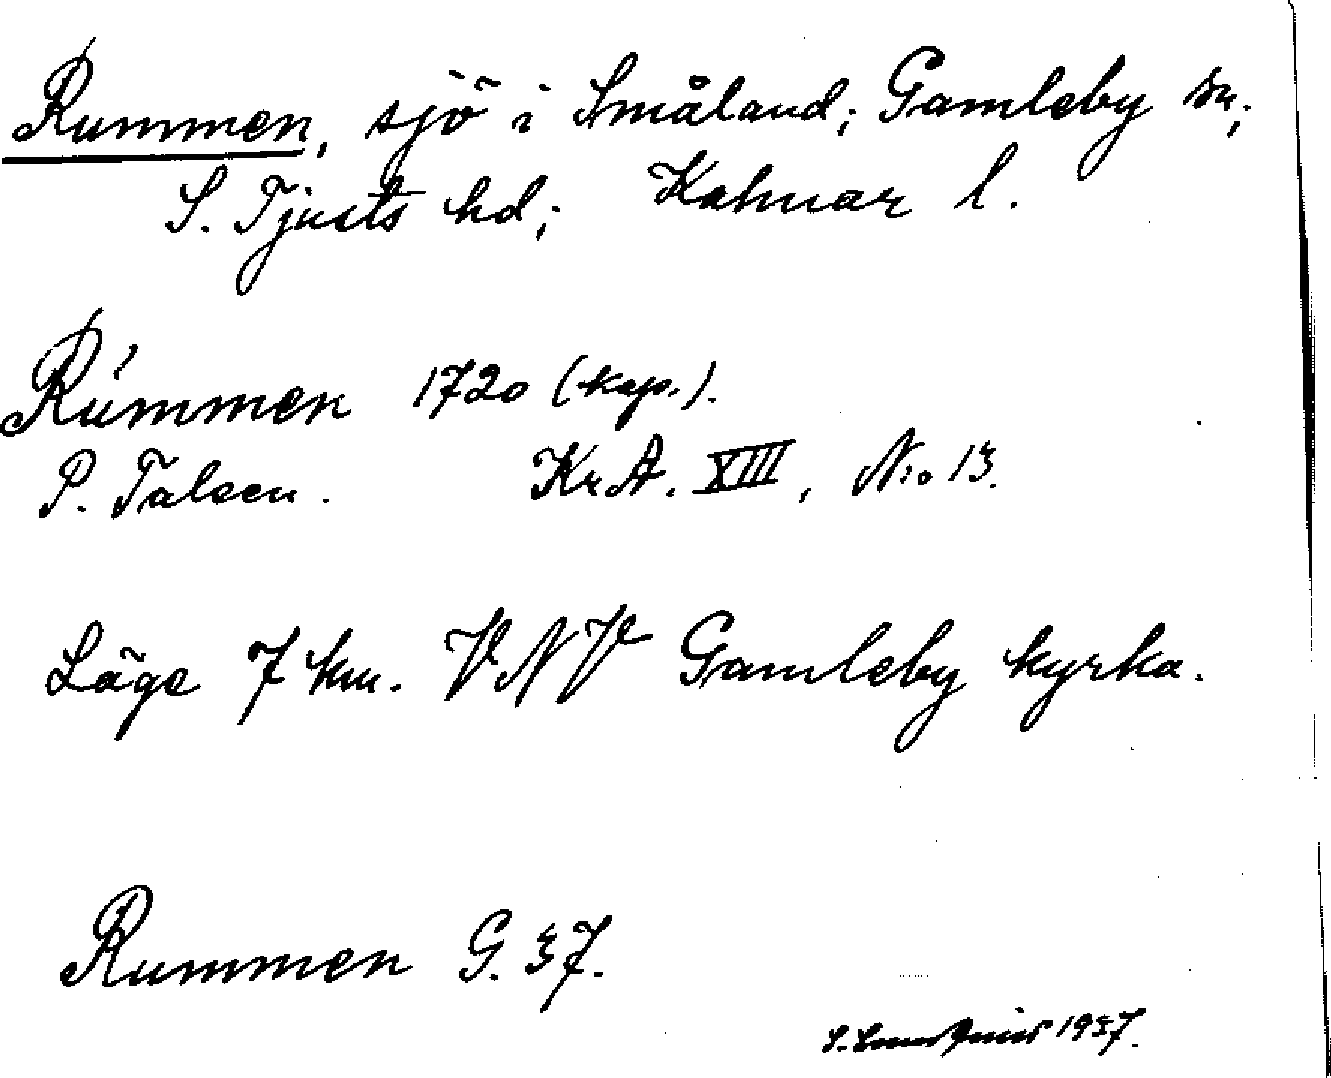 Rummen, sjö i Småland; Gamleby sn;
S. Tjusts hd; Kalmar l.
Rúmmen 1720 (kop.).
P. Taleen. KrA. XIII, N:o 13.
Läge 7 km. VNV Gamleby kyrka.
Rummen G. 37.
1937.